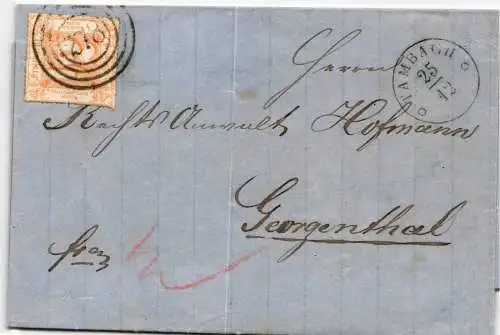 278
TAMBACH
25
Herrn
Rechts Anwalt Hofmann
Georgenthal
fran